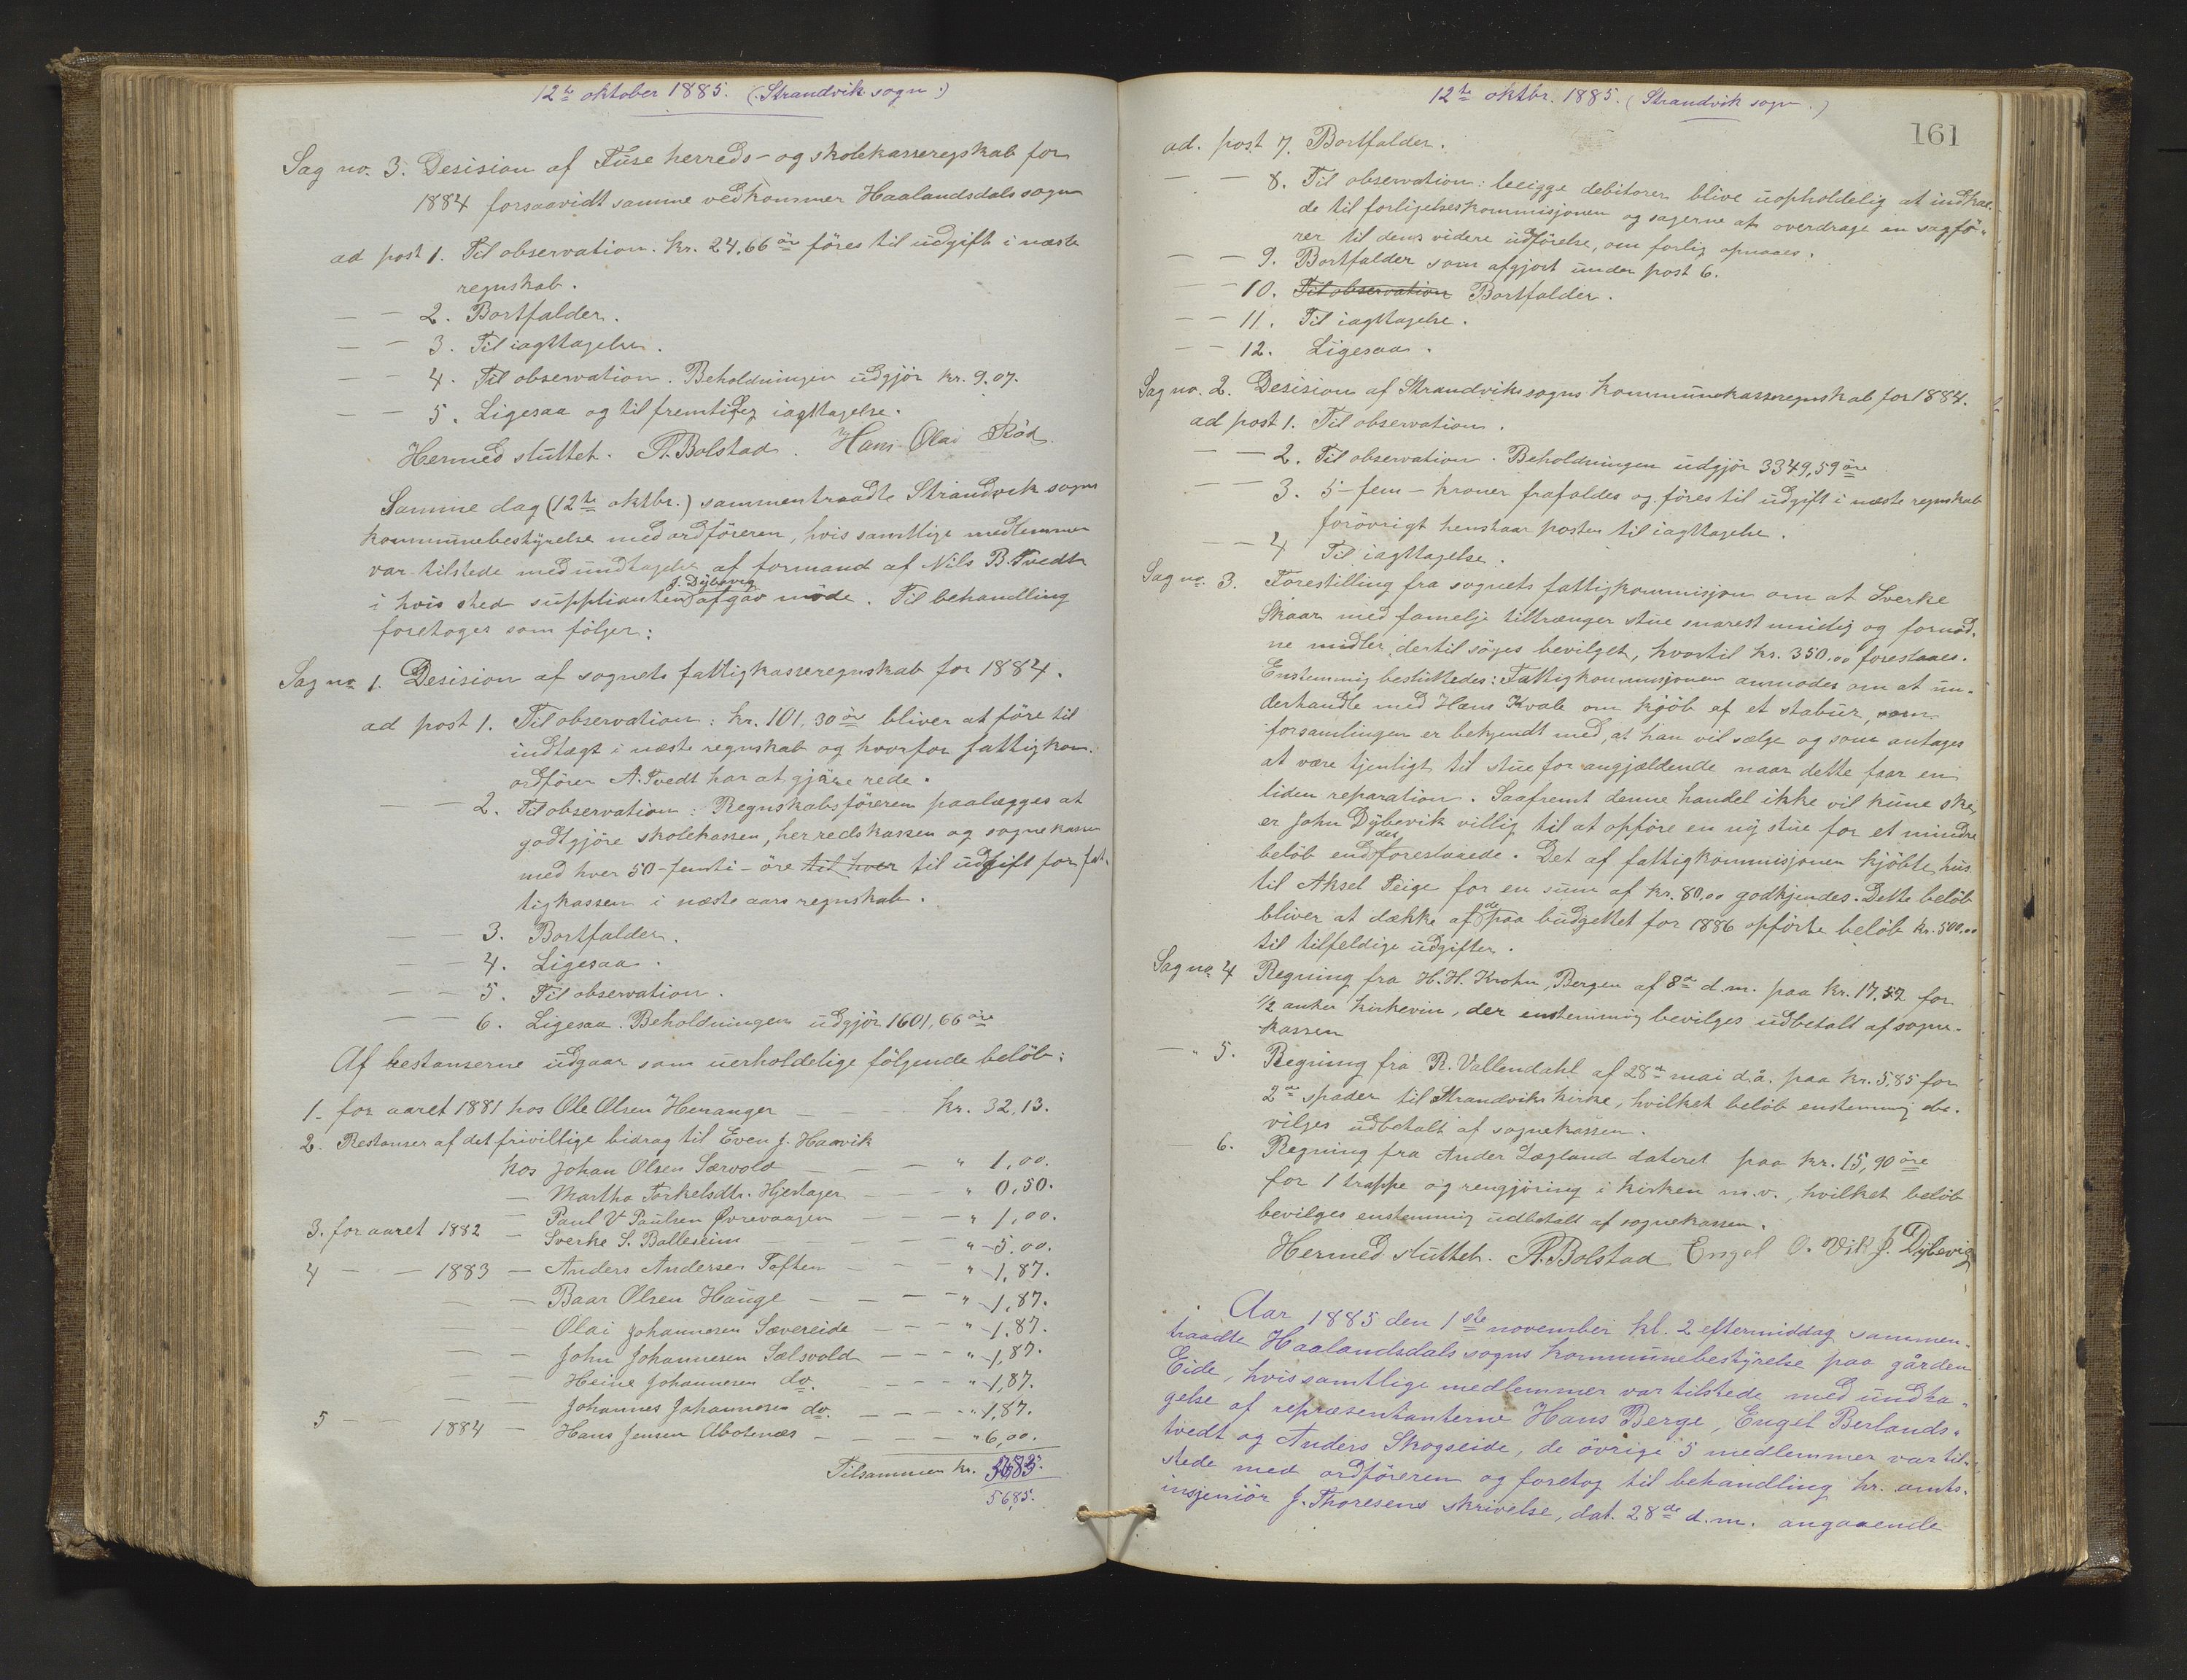 12te oktober 1885. (Strandvik sogn.)
Sag no. 3. Desision af Fuse herreds- og skolekasseregskab for
1884 forsaavidt samme vedkommer Haalandsdals sogn
ad post 1. Til observation. Kr. 24.66 öre föres til udgift i næste
regnskab.
— — 2. Bortfalder.
— — 3. Til iagttagelse.
— — 4. Til observation. Beholdningen udgjör kr. 9.07.
— — 5. Ligesaa og til fremtidig iagttagelse.
Hermed sluttet. A. Bolstad. Hans Olai Röd
Samme dag (12te oktbr.) sammentraadte Strandvik sogns
kommunebestyrelse med ordföreren, hvis samtlige medlemmer
var tilstede med undtagelse af formand af Nils B. Tvedt
i hvis sted supplianten J. Dybevig afgav möde. Til behandling
foretoges som fölger:
Sag no 1. Desision af sognets fattigkasseregnskab for 1884.
ad post 1. Til observation: kr. 101,30 öre bliver at före til
indtægt i næste regnskab og hvorfor fattigkom.
ordförer A. Tvedt har at gjöre rede.
— — 2. Til observation: Regnskabsföreren paalægges at
godtgjöre skolekassen, herredskassen og sognekassen
med hver 50-femti-öre til hver til udgift for fat-
tigkassen i næste aars regnskab.
— — 3. Bortfalder.
— — 4. Ligesaa.
— — 5. Til observation.
— — 6. Ligesaa. Beholdningen udgjör 1601,66 öre
Af restanserne udgaar som uerholdelige fölgende belöb:
1. for aaret 1881 hos Ole Olsen Henanger — — kr. 32,13.
2. Restanser af det frivillige bidrag til Even J. Haavik
hos Johan Olsen Særvold — — — " 1,00.
— Martha Torkelsdtr. Hjertager — — " 0,50.
— Paul V Paulsen Övrevaagen — — — " 1,00.
3. for aaret 1882 — Sverke S. Balleseim — — — " 5.00.
4 — — 1883 — Anders Andersen Toften — — — " 1,87.
— — Baar Olsen Hauge — — — — " 1,87.
— Olai Johannesen Sævereide — — — " 1.87.
— — John Johannesen Sælsvold — — — " 1,87.
— — Heine Johannesen do. — — — " 1,87.
— — Johannes Johannesen do. — — — " 1,87.
5 — — 1884 — Hans Jensen Abotnæs — — — — " 6,00.
Tilsammen kr.
56,85.
12te oktbr. 1885. (Strandvik sogn.)
161
ad. post 7. Bortfalder.
— — 8. Til observation: debitorer blive uopholdelig at indkal-
de til forligelseskommisjonen og sagerne at overdrage en sagfö-
rer til dens videre udförelse, om forlig opnaaes.
— — 9. Bortfalder som afgjort under post 6.
— — 10. Til observation Bortfalder.
— — 11. Til iagttagelse.
— — 12. Ligesaa.
Sag no. 2. Desision af Strandviks sogns kommunekasseregnskab for 1884.
ad post 1. Til observation.
— — 2. Til observation. Beholdningen udgjör 3349,59 öre
— — 3. 5-fem-kroner frafaldes og föres til udgift i næste regnskab
forövrigt henstaar posten til iagttagelse.
— — 4 Til iagttagelse.
Sag no. 3. Forestilling fra sognets fattigkommisjon om at Sverke
Skaar med famelje tiltrænger stue snarest muelig og fornöd-
ne midler dertil söges bevilget, hvortil kr. 350,00 foreslaaes.
Enstemmig besluttedes: Fattigkommisjonen anmodes om at un-
derhandle med Hans Kvale om kjöb af et stabur, som
forsamlingen er bekjendt med, at han vil sælge og som antages
at være tjenligt til stue for angjældende naar dette faar en
liden reparation. Saafremt denne handel ikke vil kune ske,
er John Dybevik villig til at opföre en ny stue for et mindre
belöb end det foreslaaede. Det af fattigkommisjonen kjöbte hus
til Aksel Teige for en sum af kr. 80,00 godkjendes. Dette belöb
bliver at dække af de paa budgettet for 1886 opförte belöb kr. 500,00
til tilfeldige udgifter.
Sag no. 4 Regning fra H. H. Krohn, Bergen af 8de d.m. paa kr. 17,52 for
1/2 anker kirkevin, der enstemmig bevilges udbetalt af sogne-
kassen
— " 5. Regning fra R. Vallendahl af 28de mai d.å. paa kr. 5,85 for
2de spader til Strandviks kirke, hvilket belöb enstemmig be-
vilges udbetalt af sognekassen.
— 6. Regning fra Ander Lægland dateret paa kr. 15,90 öre
for 1 trappe og rengjöring i kirken m.v., hvilket belöb
bevilges enstemmig udbetalt af sognekassen.
Hermed sluttet. A. Bolstad Engel O. Vik J. Dybevig
Aar 1885 den 1ste november kl. 2 eftermiddag sammen-
traadte Haalandsdals sogns kommunebestyrelse paa gården
Eide, hvis samtlige medlemmer var tilstede med undta-
gelse af repræsentanterne Hans Berge, Engel Berlands-
tvedt og Anders Skogseide, de övrige 5 medlemmer var til-
stede med ordföreren og foretog til behandling hr. amts-
insjeniör J. Thoresens skrivelse, dat. 28de d.m. angaaende